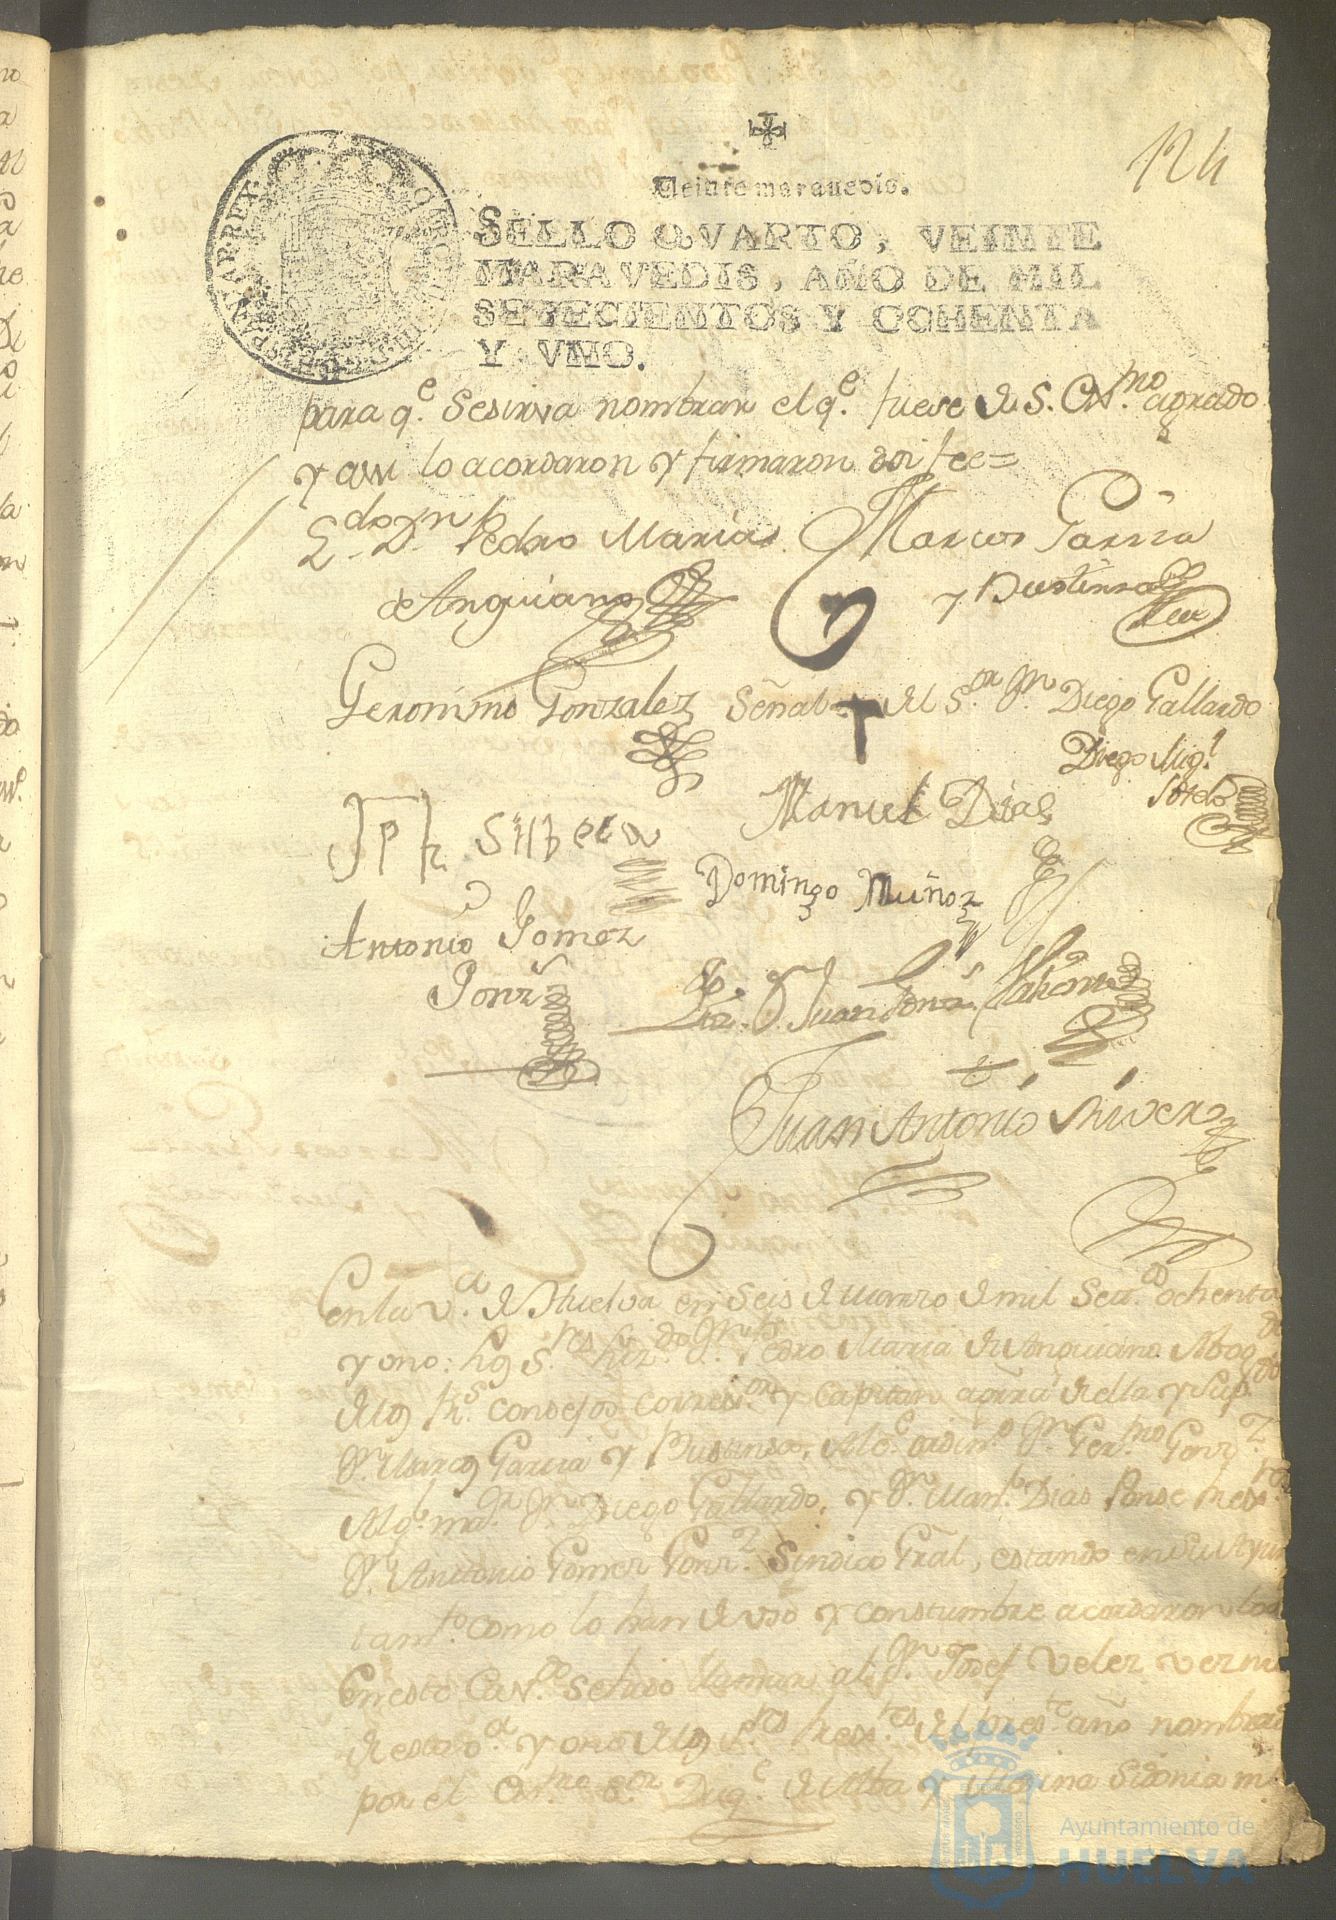 124
Veinte maravedis.
SELLO QVARTO, VEINTE
MARAVEDIS, AÑO DE MIL
SETECIENTOS Y OCHENTA
Y VNO.
para q.e se sirva nombrar el q.e fuese de S. Ex.ma agrado
y assi lo acordaron y firmaron doi fee=
L.do D.n Pedro Maria Marcos Garcia
de Anguiano y Bustinza
Geronimo Gonzalez Señal del S.or D.n Diego Gallardo
Diego Mig.l
Manuel Dias
Jph Silbera
Domingo Muñoz
Antonio Gomez
Gonz.s
Juan
Juan Antonio Rivera
En la v.a de Huelva en seis de marzo de mil set.s ochenta
y uno: los S.res Pedro Maria de Anguiano Abog.do
de los R.s Consejos Correx.or y Capitan a Grra de ella y su p.do
D.n Marcos Garcia y Bustinsa, Alc.e ordin.o D.n Ger.mo Gonz.z
Alg.l ma.or D.n Diego Gallardo, y D.n Man.l Dias Ponse Rex.res
D.n Antonio Gomez Gonz.z Sindico Gral, estando en su Ayun
tam.to como lo han de uso y constumbre acordaron lo
En este Cav.do se hiso llamar al D.n Josef Velez vezni
de esta v.a y uno de los S.res Rex.res del pres.te año nombrad
por el Ex.mo S.or Duq.e de Alba y Medina Sidonia
Ayuntamiento de
HUELVA